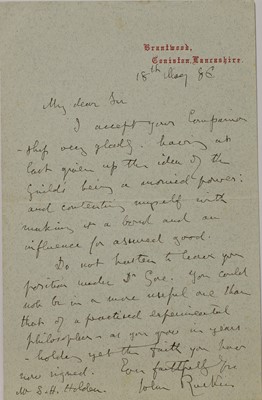 Brantwood,
Coniston, Lancashire.
18th May 86
My dear Sir
I accept your Companion
-ship very gladly. having at
last given up the idea of the
Guilds being a power:
and contenting myself with
making it a bond and an
influence for assured good.
Do not hasten to leave your
position under Dr Gore. You could
not be in a more useful one than
that of a practised experimental
philosopher - as you grow in years
- holding yet the faith you have
now signed. Ever faithfully yrs
Mr S. H. Holden. John Ruskin